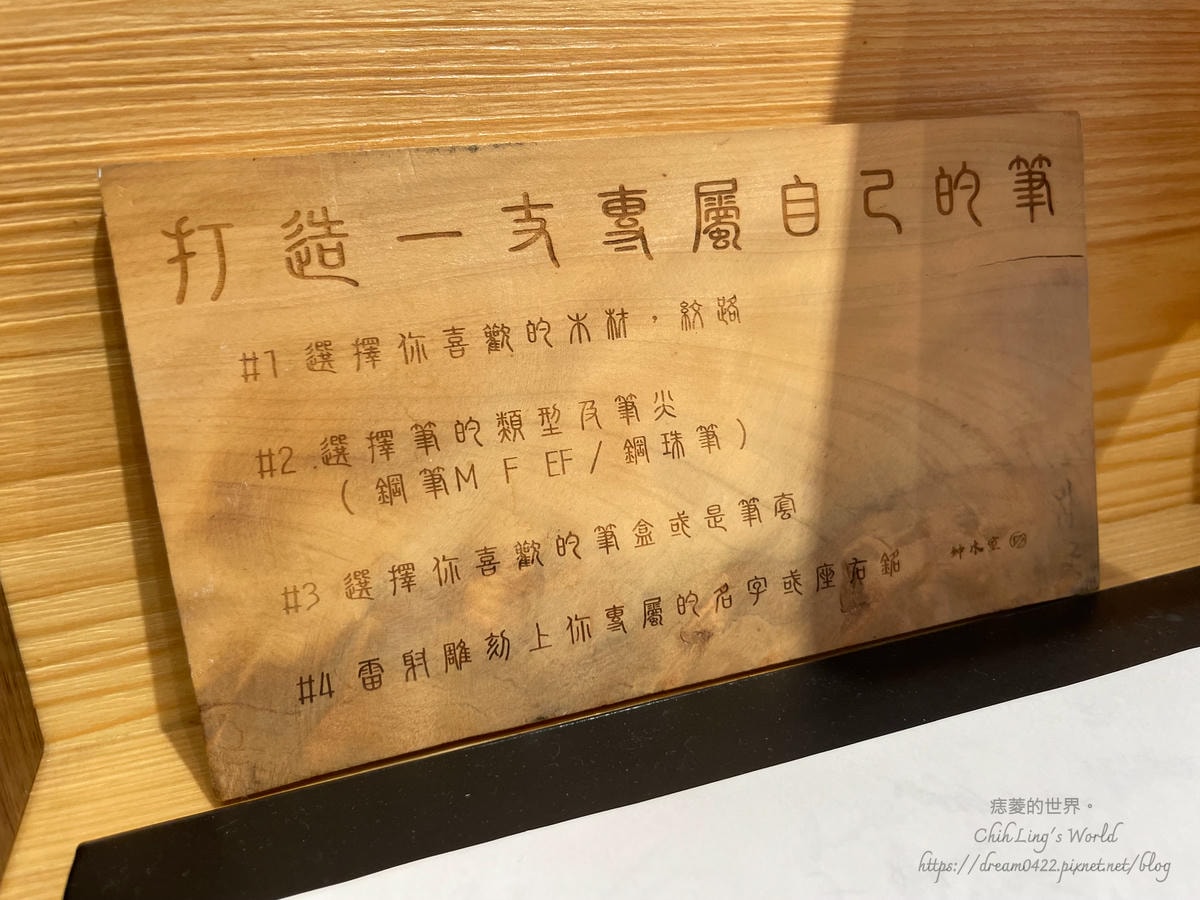 打造一支專屬自己的筆
#1 選擇你喜歡的木材，紋路
#2 選擇筆的類型及筆尖
( 鋼筆M F EF / 鋼珠筆 )
#3 選擇你喜歡的筆盒或是筆套
#4 雷射雕刻上你專屬的名字或座右銘
痣菱的世界。
Chih Ling's World
https://dream0422.pixnet.net/blog